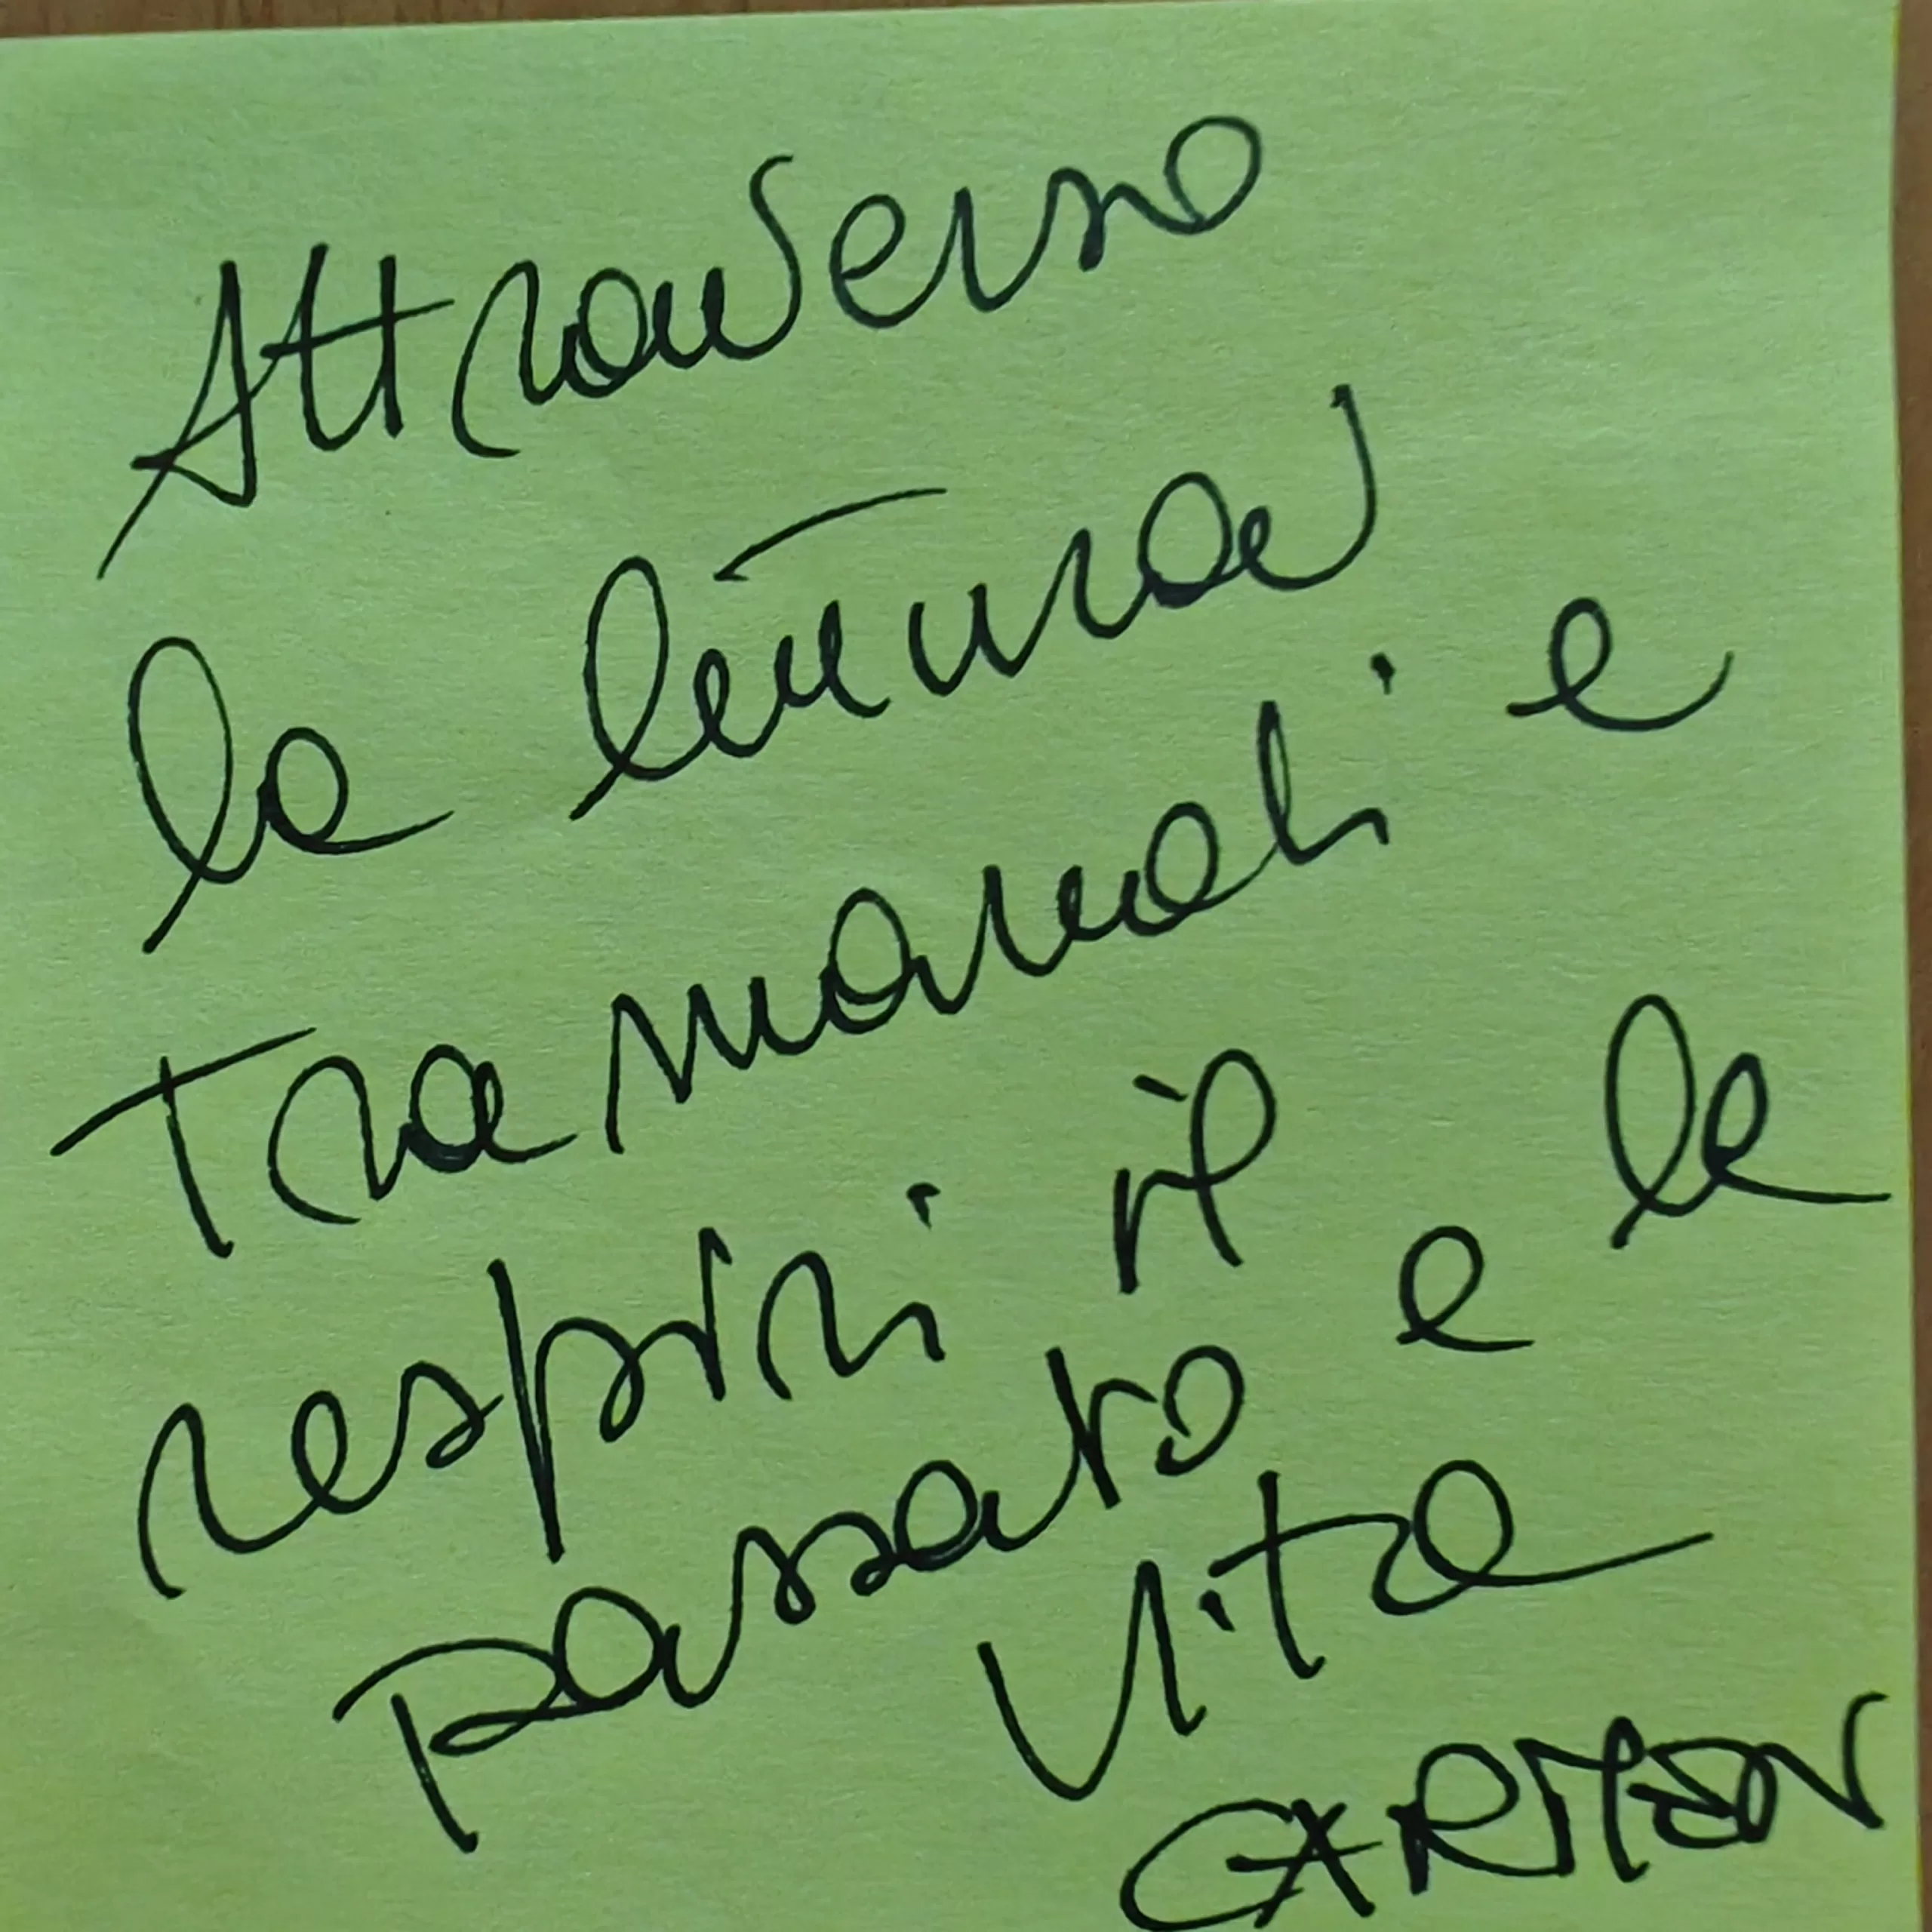 Attraverso
la lettura
tramandi e
respiri il
passato e la
vita
CARMEN